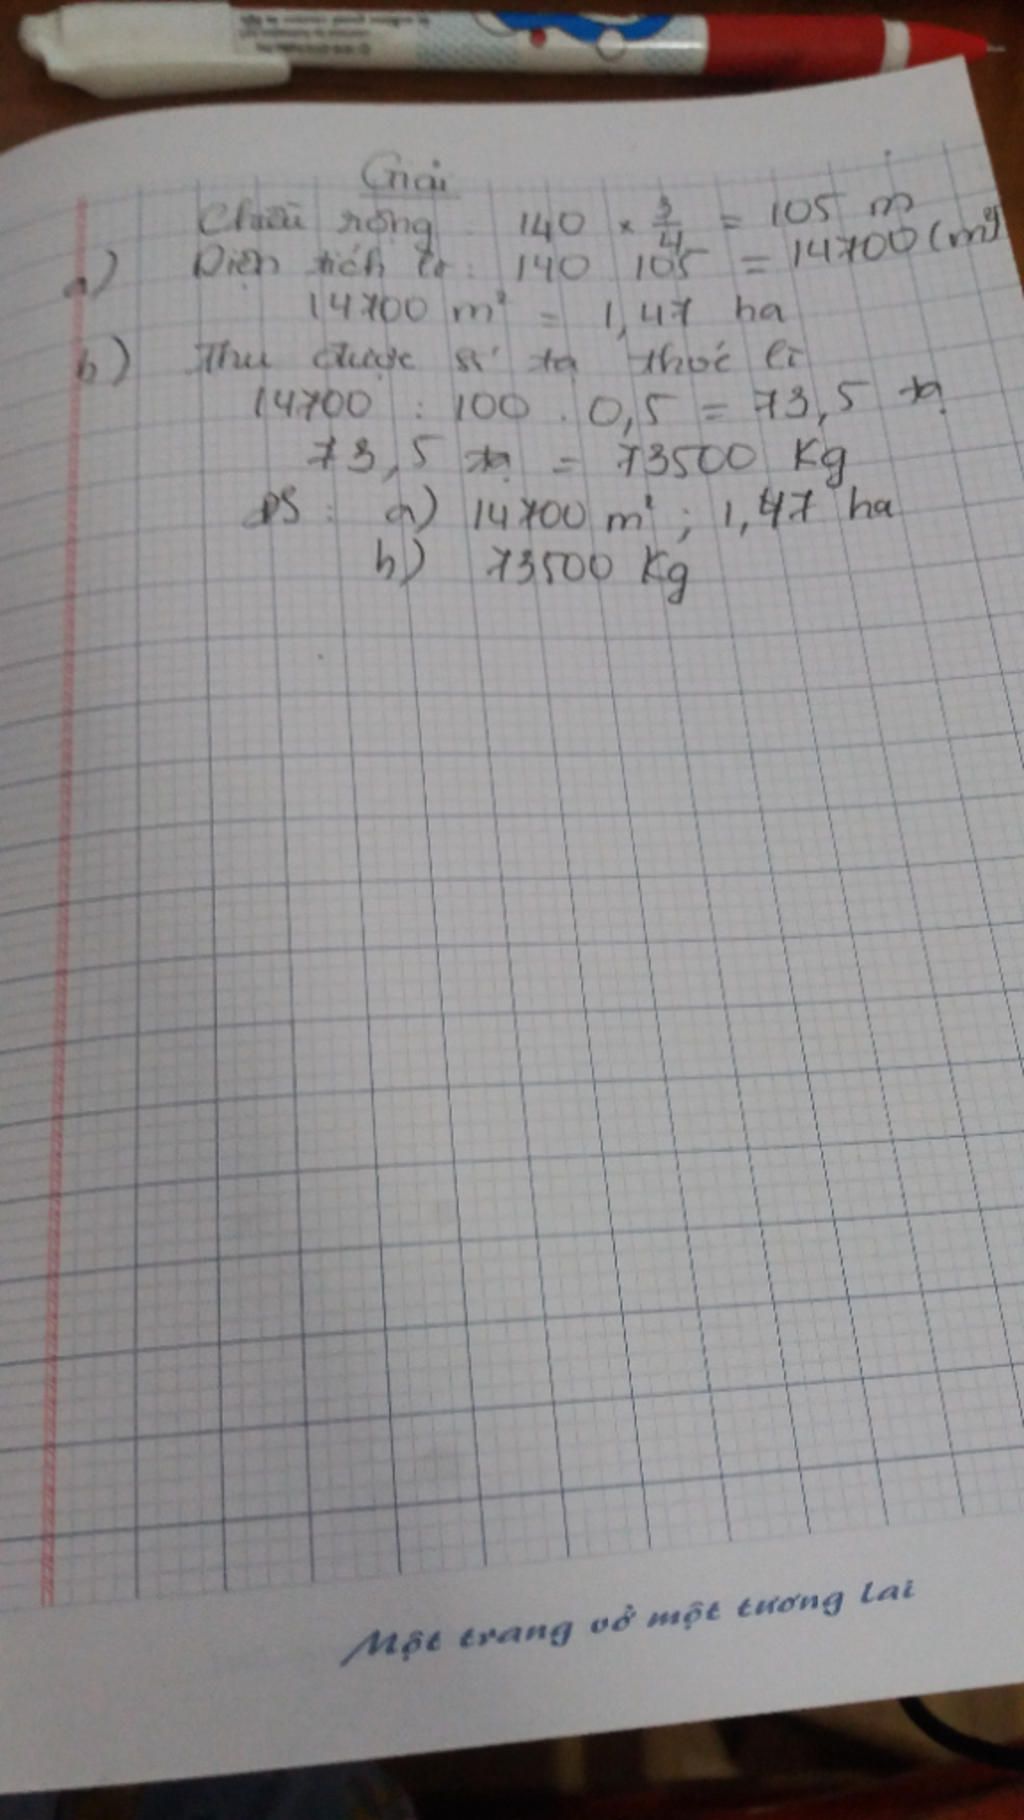 Giải
Chiều rộng : 140 × 3/4 = 105 m
a) Diện tích là : 140 105 = 14700 (m²)
14700 m² = 1,47 ha
b) Thu được số tạ thóc là
14700 : 100 . 0,5 = 73,5 tạ
73,5 tạ = 73500 Kg
ĐS : a) 14700 m² ; 1,47 ha
b) 73500 Kg
Một trang vở một tương lai